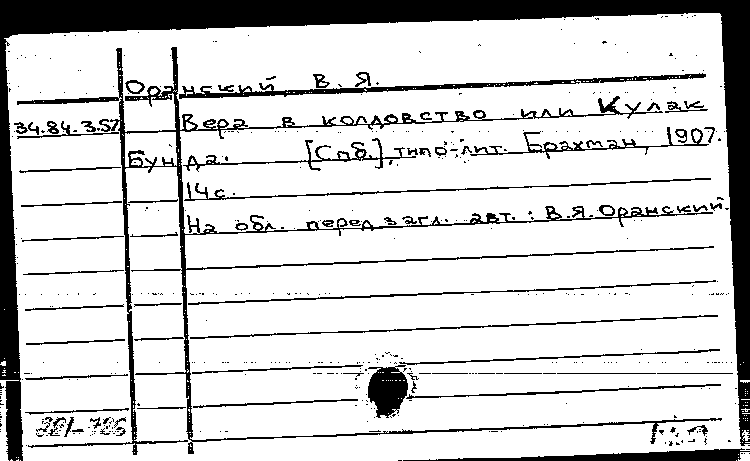 Оранский В. Я.
34.84.3.57 Вера в колдовство или Кулак
Бунда. [Спб.], типо-лит. Брахман, 1907.
14 с.
На обл. перед загл. авт.: В.Я. Оранский.